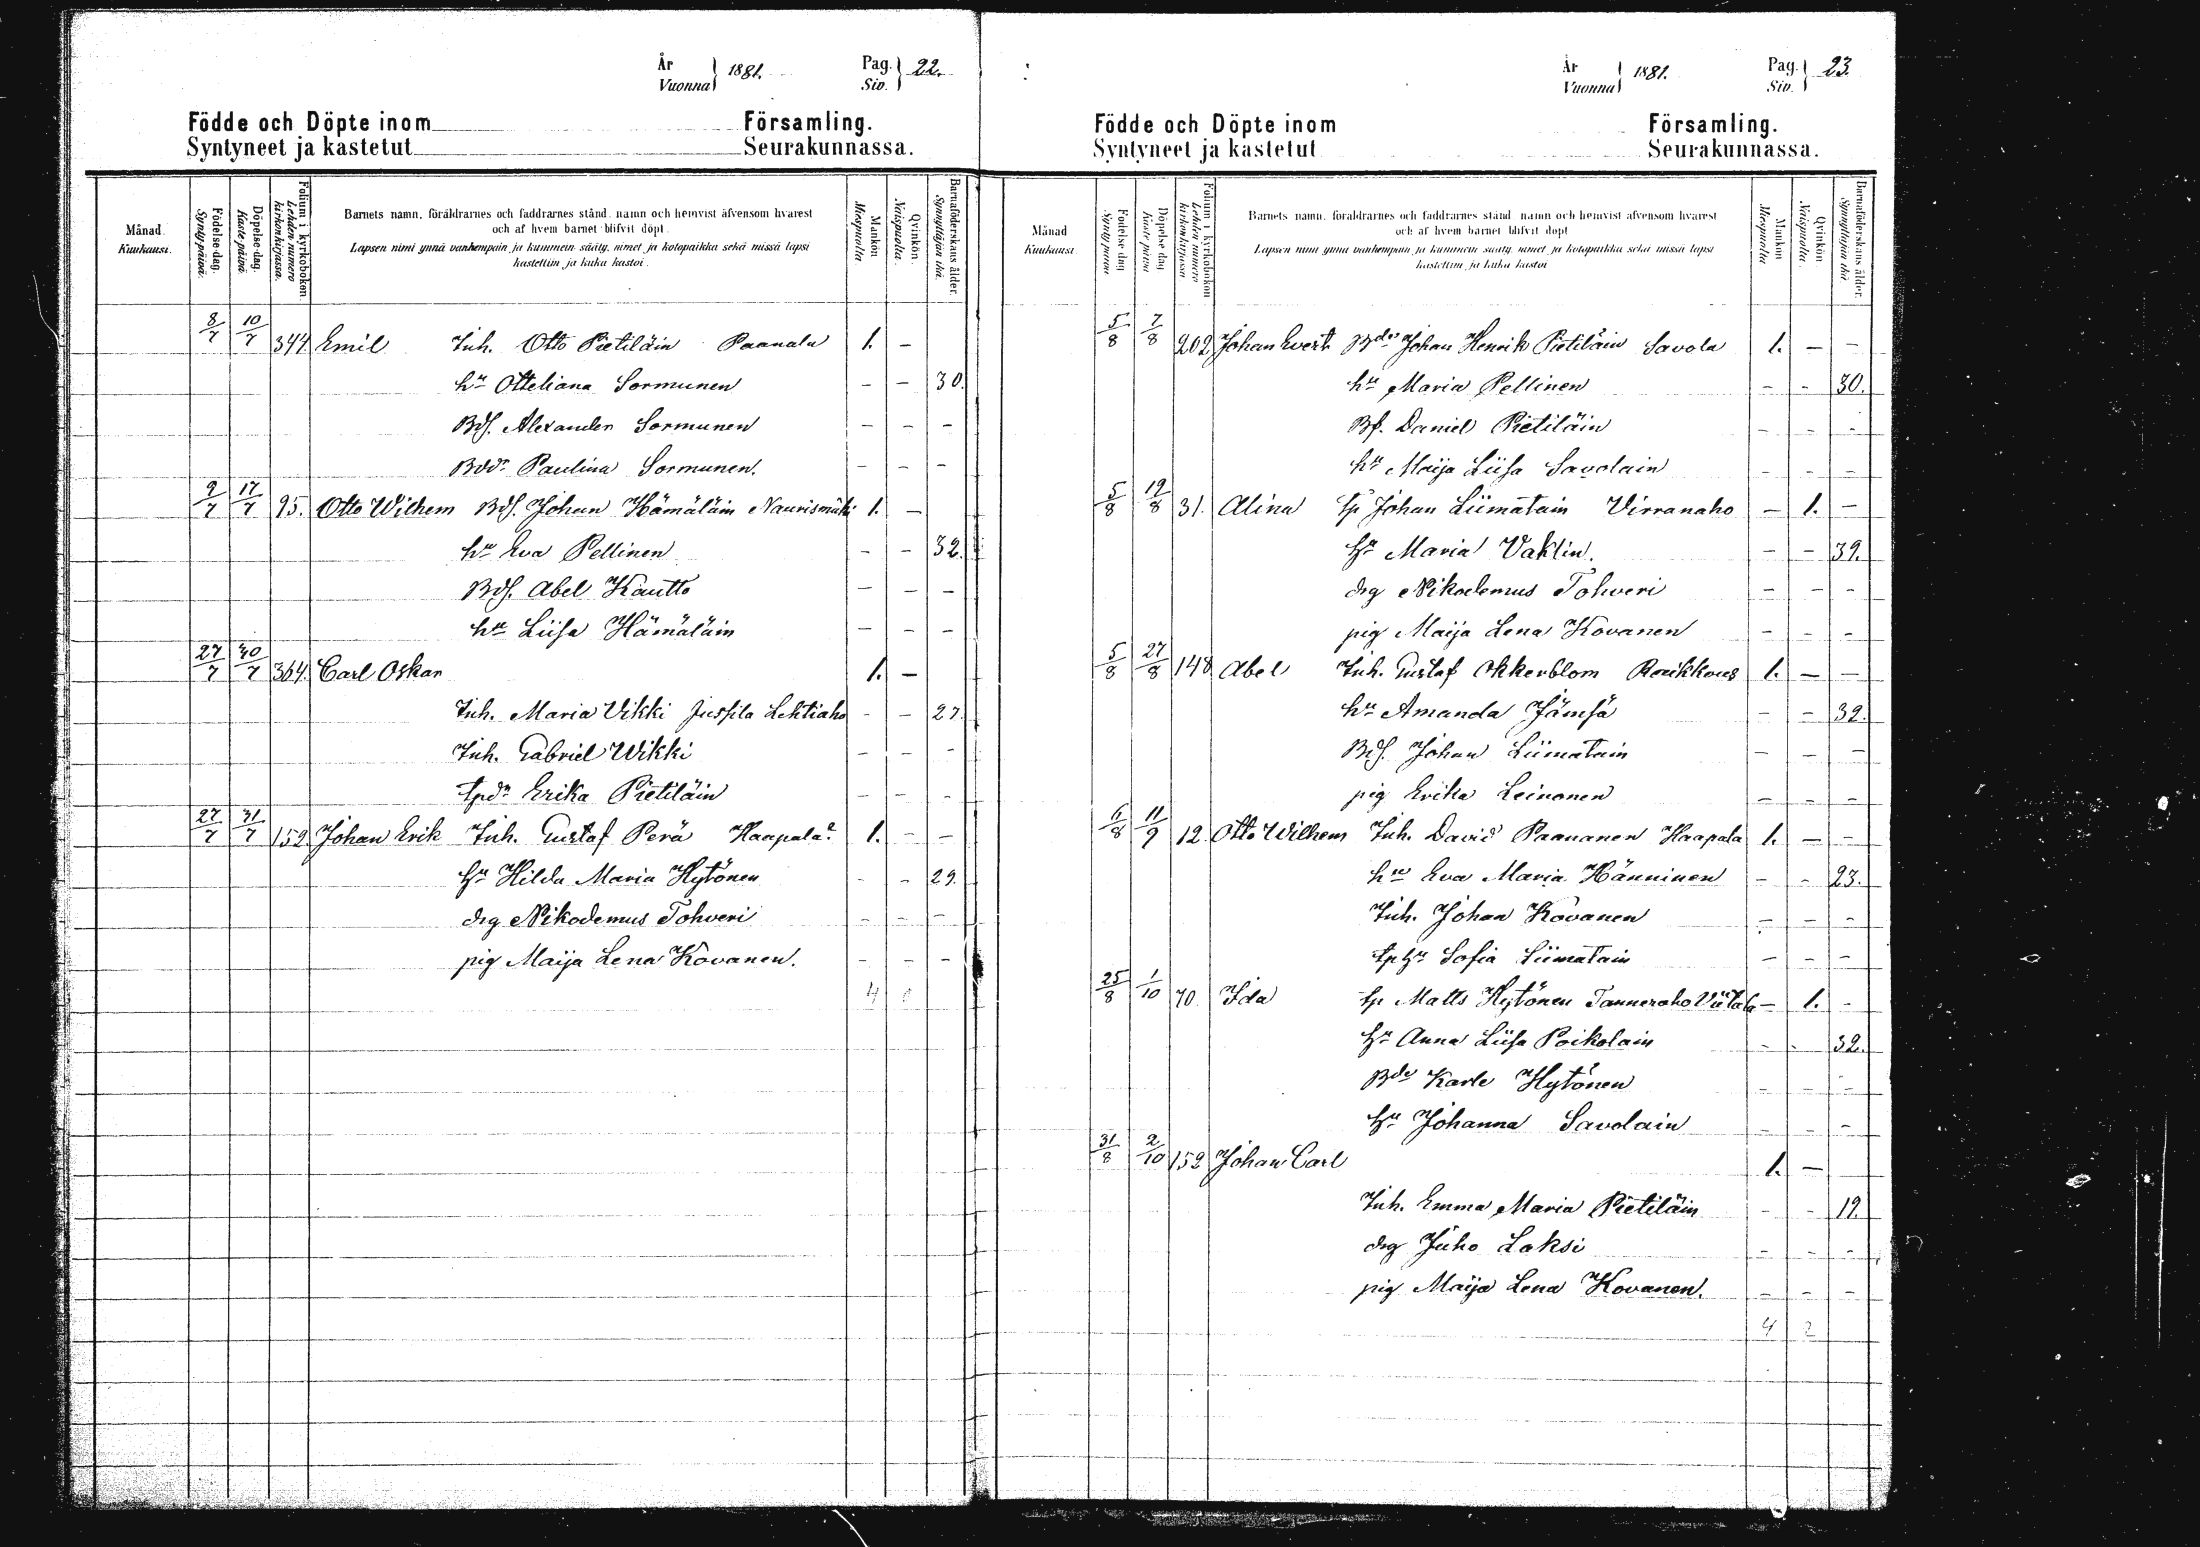 År
Vuonna } 1881.
Pag.
Siv. } 22.
Födde och Döpte inom Församling.
Syntyneet ja kastetut Seurakunnassa.
Månad.
Kuukausi.
Födelse dag.
Syntypäivä.
Döpelse dag.
Kaste päivä.
Folium i kyrkoboken
Lehden numero
kirkonkirjassa.
Barnets namn, föräldrarnes och faddrarnes stånd, namn och hemvist äfvensom hvarest
och af hvem barnet blifvit döpt.
Lapsen nimi ynnä vanhempain ja kummein sääty, nimet ja kotopaikka sekä missä lapsi
kastettiin ja kuka kastoi.
Mankön
Miespuolia
Qvinkön
Naispuolia.
Barnaföderskans ålder.
Synnyttäjän ikä.
8/7 10/7 344. Emil Inh. Otto Pietiläin Paanala 1. –
hu Otteliana Sormunen – – 30.
Bdf. Alexander Sormunen – – –
Bddr Paulina Sormunen. – – –
9/7 17/7 95. Otto Wilhem Bdf. Johan Hämäläin Naurismäki 1. –
hu Eva Pellinen – – 32.
Bdf. Abel Kautto – – –
hu Liisa Hämäläin – – –
27/7 30/7 364. Carl Oskar 1. –
Inh. Maria Vikki Jussila Lehtiaho – – 27.
Inh. Gabriel Wikki – – –
tpdr Erika Pietiläin – – –
27/7 31/7 152 Johan Erik Inh. Gustaf Perä Haapala? 1. – –
hu Hilda Maria Hytönen – – 29.
drg Nikodemus Tohveri – – –
pig Maija Lena Kovanen. – – –
4 0
År
Vuonna } 1881.
Pag.
Siv. } 23.
Födde och Döpte inom Församling.
Syntyneet ja kastetut Seurakunnassa.
Månad
Kuukausi.
Födelse dag
Syntypäivä
Döpelse dag
Kaste päivä
Folium i kyrkoboken
Lehden numero
kirkonkirjassa
Barnets namn, föräldrarnes och faddrarnes stånd, namn och hemvist äfvensom hvarest
och af hvem barnet blifvit döpt
Lapsen nimi ynnä vanhempain ja kummein sääty, nimet ja kotopaikka sekä missä lapsi
kastettiin ja kuka kastoi
Mankön
Miespuolia
Qvinkön
Naispuolia.
Barnaföderskans ålder.
Synnyttäjän ikä
5/8 7/8 202 Johan Evert Johan Henrik Pietiläin Savola 1. – –
hu Maria Pellinen – – 30.
Bf. Daniel Pietiläin – – –
hu Maija Liisa Savolain – – –
5/8 19/8 31. Alina tp Johan Liimatain Virranaho – 1. –
hu Maria Vaklin. – – 39.
drg Nikodemus Tohveri – – –
pig Maija Lena Kovanen – – –
5/8 27/8 148 Abel Inh. Gustaf Okkerblom Roukkous 1. – –
hu Amanda Jämsä – – 32.
Bdf. Johan Liimatain – – –
pig Erika Leinonen – – –
6/8 11/9 12. Otto Wilhem Inh. David Paananen Haapala 1. – –
hu Eva Maria Hänninen – – 23.
Inh. Johan Kovanen – – –
tphu Sofia Liimatain – – –
25/8 1/10 70. Ida tp Matts Hytönen Tanneraho Viitala – 1. –
hu Anna Liisa Poikolain – – 32.
Bde Karle Hytönen – – –
hu Johanna Savolain – – –
31/8 2/10 152 Johan Carl 1. –
Inh. Emma Maria Pietiläin – – 19.
drg Juho Laksi – – –
pig Maija Lena Kovanen. – – –
4 2